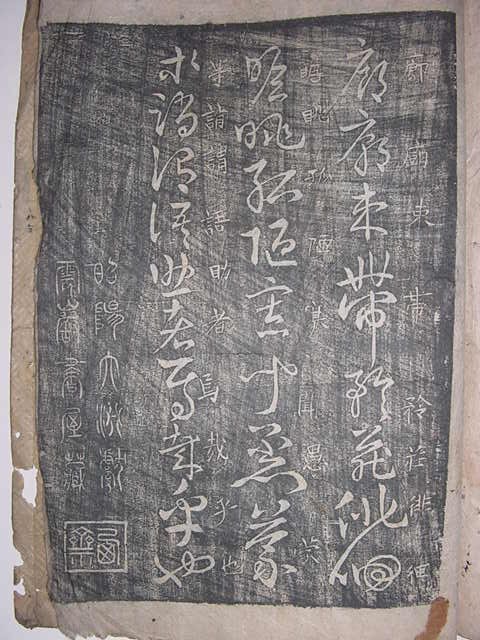 廊廟束帶矜莊徘徊
廊廟束帶矜莊徘徊
瞻眺孤陋寡聞愚蒙
瞻眺孤陋寡聞愚蒙
等誚謂語助者焉哉乎也
等誚謂語助者焉哉乎也
昭陽大淵獻
書屋藏